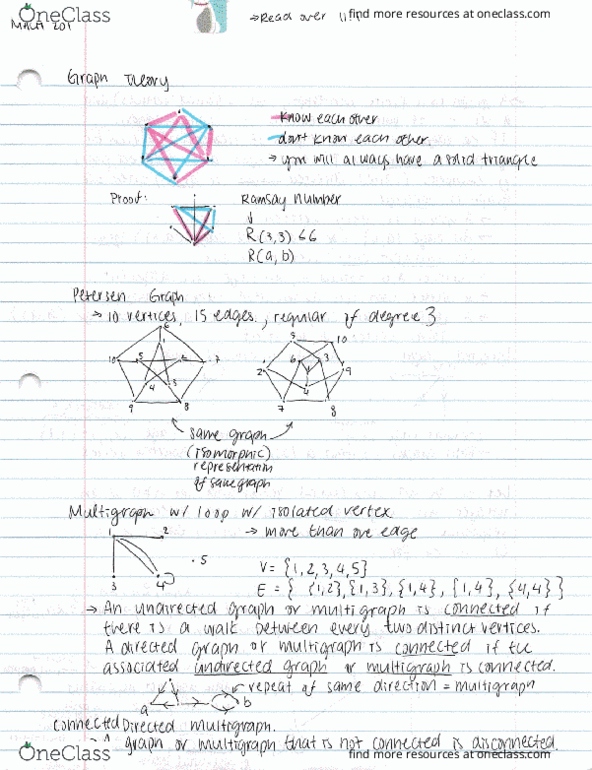 OneClass
find more resources at oneclass.com
→Read over
Math 201
Graph Theory
know each other
don't know each other
→ you will always have a solid triangle
Proof:
Ramsay Number
↓
R(3,3) ≤6
R(a,b)
Petersen Graph
→ 10 vertices, 15 edges, regular of degree 3
6
1
10 5 2 7
4 3
9 8
5 10
6 3
2 1 9
4
7 8
same graph
(isomorphic)
representation
of same graph
Multigraph w/ loop w/ isolated vertex
→ more than one edge
1 2
. 5
3 4
V = {1,2,3,4,5}
E = { {1,2},{1,3},{1,4},{1,4},{4,4} }
→ An undirected graph or multigraph is connected if
there is a walk between every two distinct vertices.
A directed graph or multigraph is connected if the
associated undirected graph or multigraph is connected.
repeat of same direction = multigraph
a b
connected Directed multigraph.
A graph or multigraph that is not connected is disconnected.
OneClass
find more resources at oneclass.com